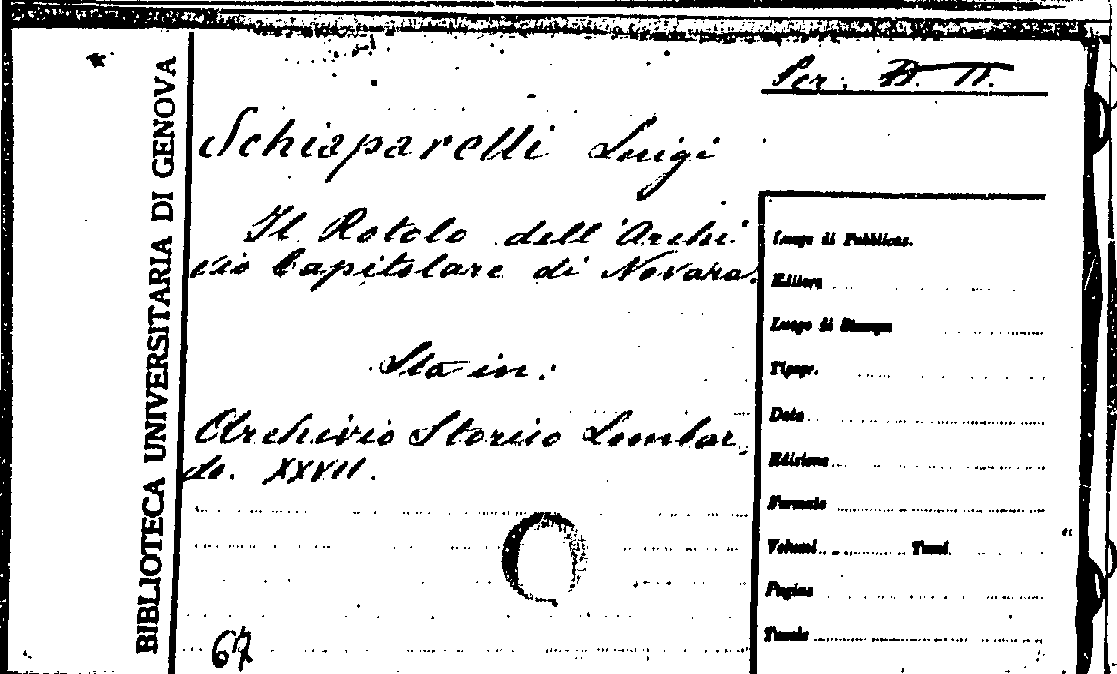 BIBLIOTECA UNIVERSITARIA DI GENOVA
Per. II. 11.
Schiaparelli Luigi
Il Rotolo dell'Archi-
vio Capitolare di Novara.
Sta in:
Archivio Storico Lombar-
do. XXVII.
67
Luogo di Pubblicaz.
Editore
Luogo di Stampa
Tipogr.
Data
Edizione
Formato
Volumi Tomi
Pagine
Tavole